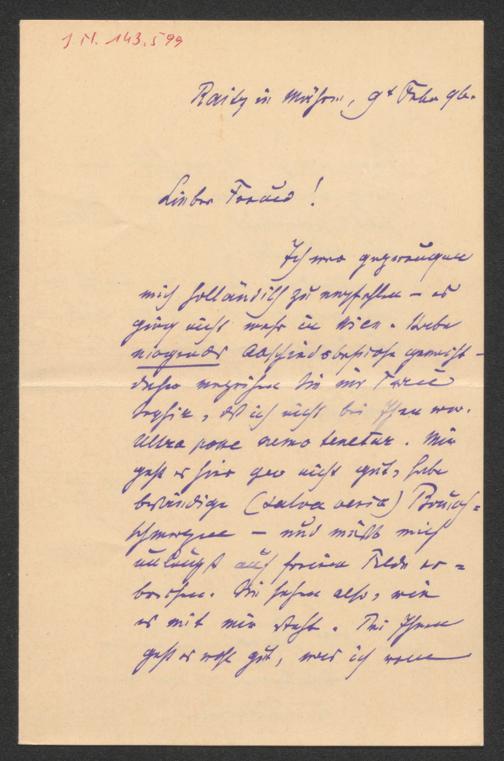 J. N. 143.599
Raitz in Mähren, 9t Febr 96.
Lieber Freund!
Ich war gezwungen
mich holländisch zu empfehlen – es
ging nicht mehr in Wien. Habe
nirgends Abschiedsbesuche gemacht –
daher verzeihen Sie mir
, daß ich nicht bei Ihnen war.
Ultra posse nemo tenetur. Mir
geht es hier gar nicht gut, habe
beständige (salva venia) Bauch-
schmerzen – und mußte mich
unlängst auf freiem Felde er-
brechen. Sie sehen also, wie
es mit mir steht. Bei Ihnen
geht es wohl gut, was ich